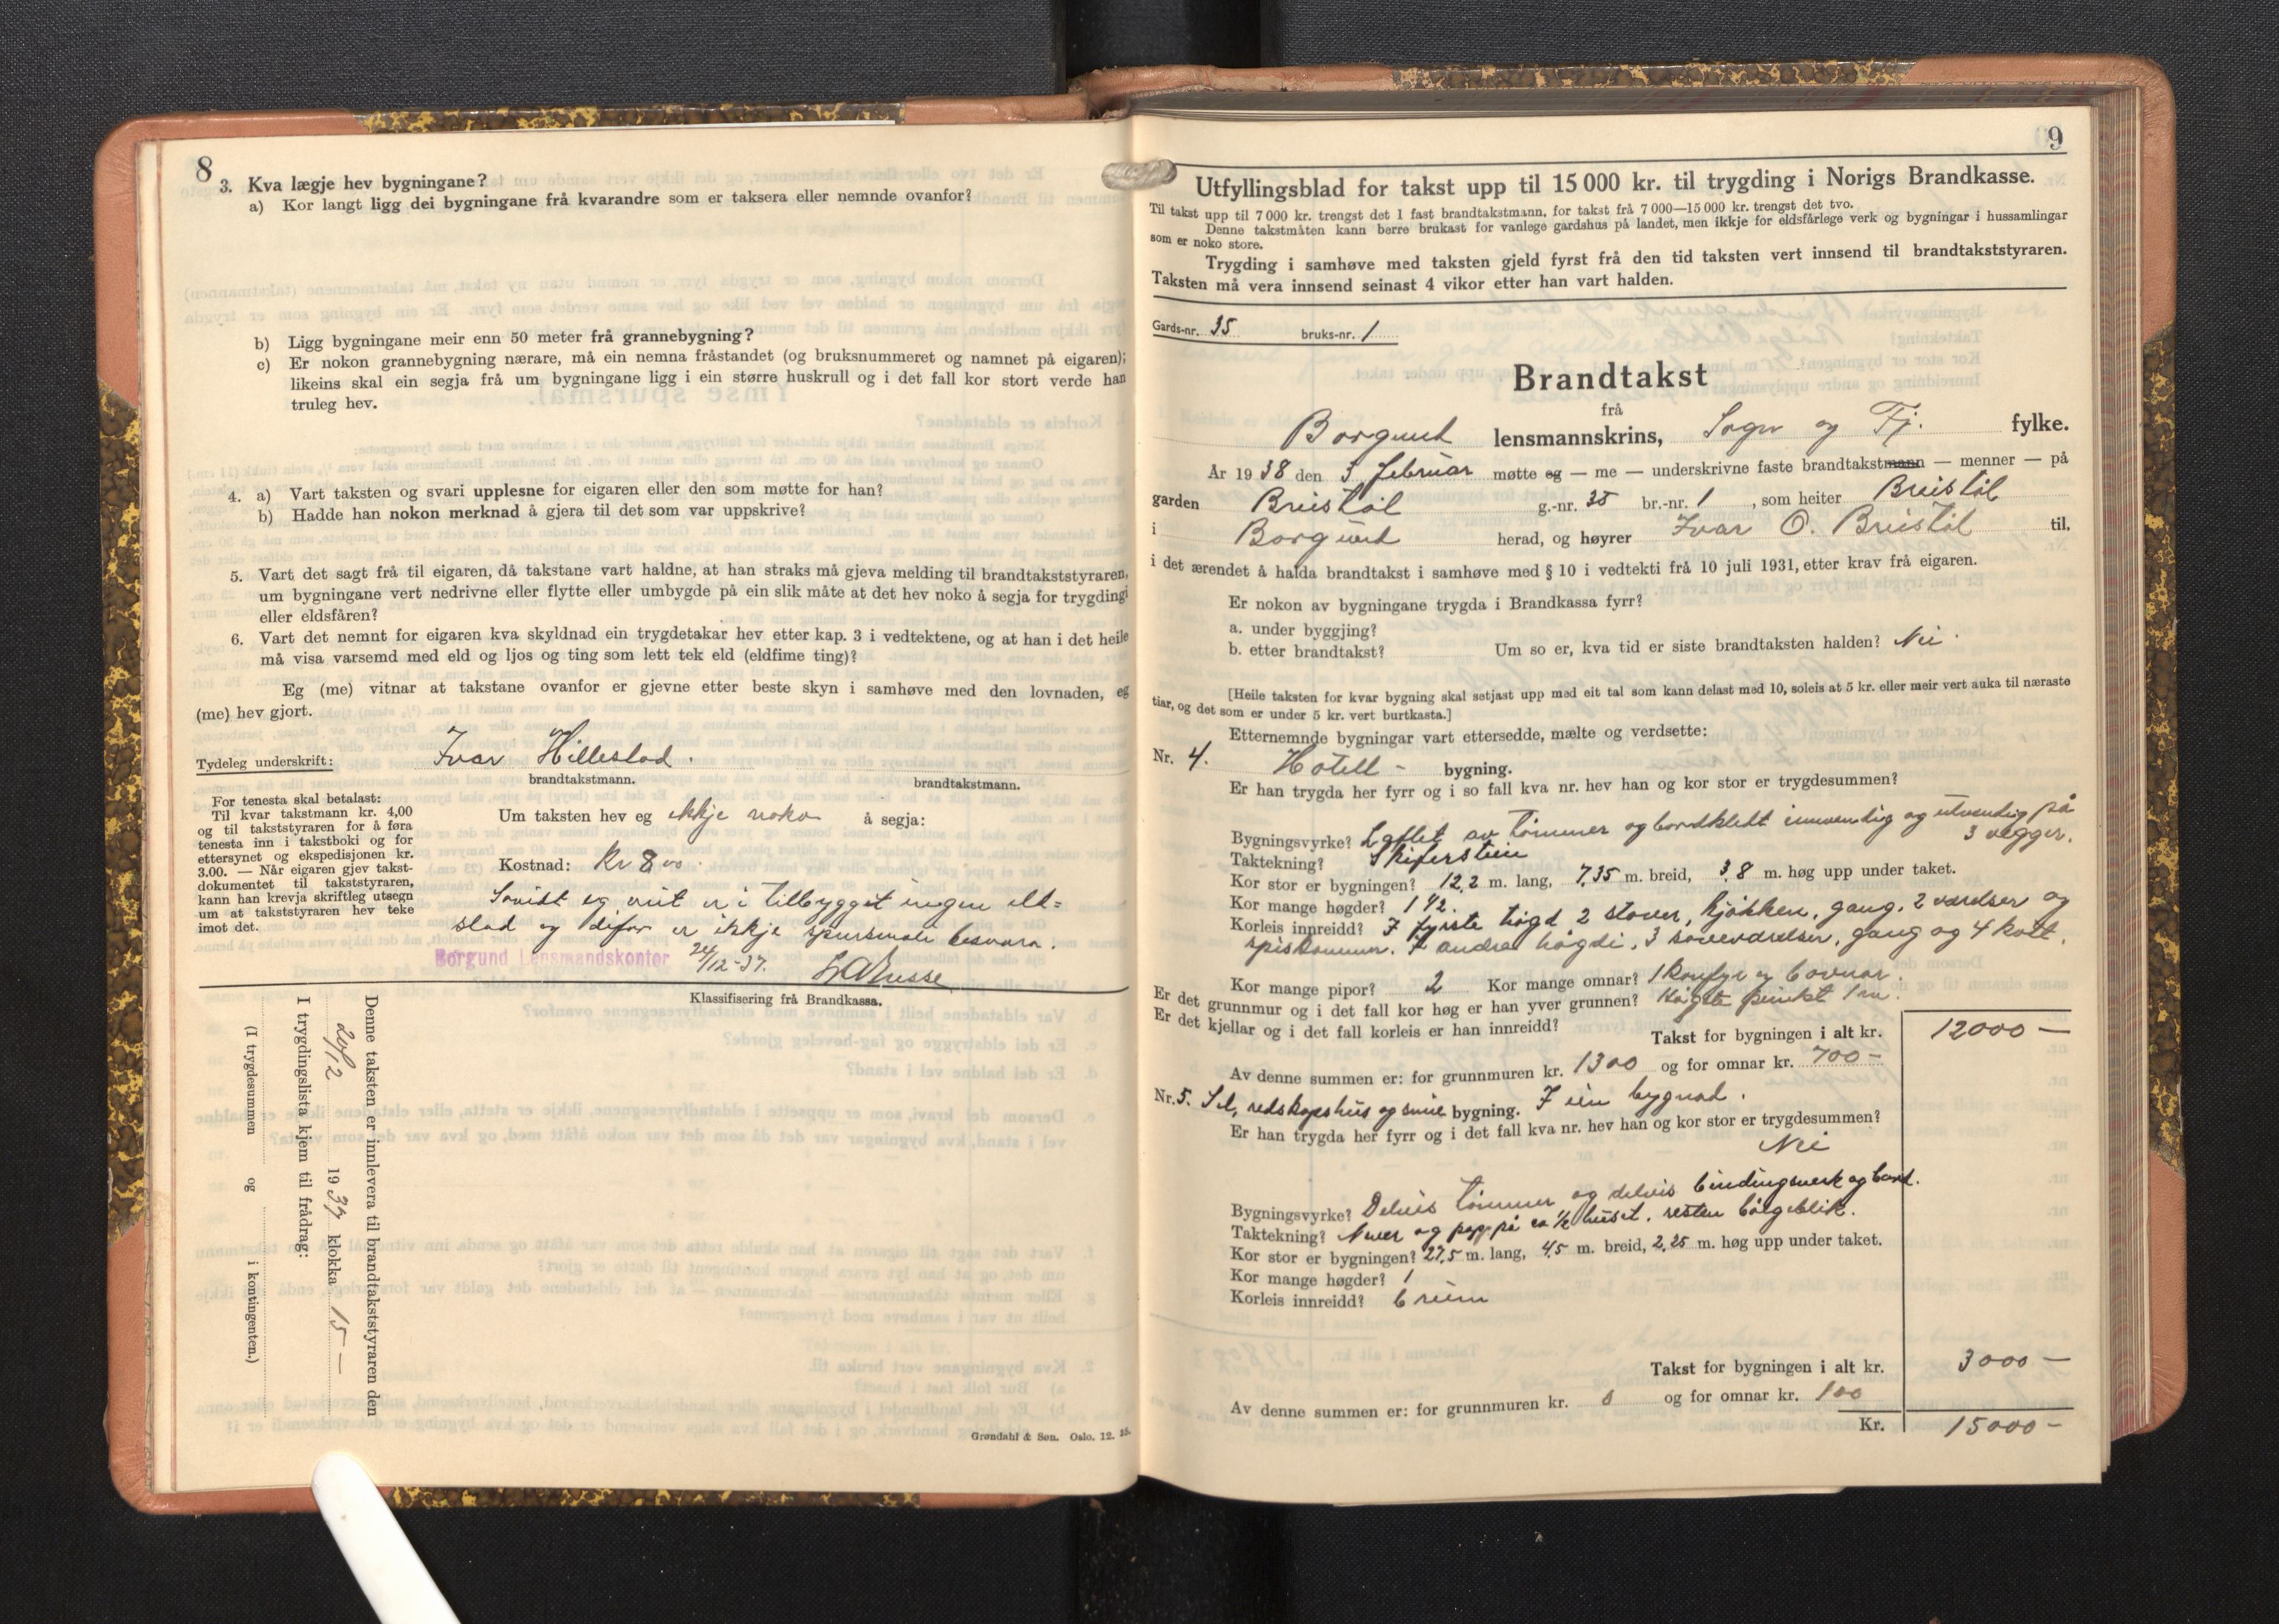 8
3. Kva lægje hev bygningane?
a) Kor langt ligg dei bygningane frå kvarandre som er taksera eller nemnde ovanfor?
b) Ligg bygningane meir enn 50 meter frå grannebygning?
c) Er nokon grannebygning nærare, må ein nemna fråstandet (og bruksnummeret og namnet på eigaren);
likeins skal ein segja frå um bygningane ligg i ein større huskrull og i det fall kor stort verde han
truleg hev.
4. a) Vart taksten og svari upplesne for eigaren eller den som møtte for han?
b) Hadde han nokon merknad å gjera til det som var uppskrive?
5. Vart det sagt frå til eigaren, då takstane vart haldne, at han straks må gjeva melding til brandtakststyraren,
um bygningane vert nedrivne eller flytte eller umbygde på ein slik måte at det hev noko å segja for trygdingi
eller eldsfåren?
6. Vart det nemnt for eigaren kva skyldnad ein trygdetakar hev etter kap. 3 i vedtektene, og at han i det heile
må visa varsemd med eld og ljos og ting som lett tek eld (eldfime ting)?
Eg (me) vitnar at takstane ovanfor er gjevne etter beste skyn i samhøve med den lovnaden, eg
(me) hev gjort.
Tydeleg underskrift: Ivar Hillestad.
brandtakstmann. brandtakstmann.
For tenesta skal betalast:
Til kvar takstmann kr. 4,00
og til takststyraren for å føra
tenesta inn i takstboki og for
ettersynet og ekspedisjonen kr.
3.00. — Når eigaren gjev takst-
dokumentet til takststyraren,
kann han krevja skriftleg utsegn
um at takststyraren hev teke
imot det.
Um taksten hev eg ikkje noko å segja:
Kostnad: Kr 8 00.
Såvidt eg veit er i tilbygget ingen eld=
stad og difor er ikkje spursmåli besvara.
Borgund Lensmandskontor 24/12-37.
Klassifisering frå Brandkassa.
Denne taksten er innlevera til brandtakststyraren den
20/12 1937 klokka 15 —
I trygdingslista kjem til frådrag:
(I trygdesummen og i kontingenten.)
Grøndahl & Søn. Oslo. 12. 35.
9
Utfyllingsblad for takst upp til 15 000 kr. til trygding i Norigs Brandkasse.
Til takst upp til 7 000 kr. trengst det 1 fast brandtakstmann, for takst frå 7 000—15 000 kr. trengst det tvo.
Denne takstmåten kann berre brukast for vanlege gardshus på landet, men ikkje for eldsfårlege verk og bygningar i hussamlingar
som er noko store.
Trygding i samhøve med taksten gjeld fyrst frå den tid taksten vert innsend til brandtakststyraren.
Taksten må vera innsend seinast 4 vikor etter han vart halden.
Gards-nr. 35 bruks-nr. 1
Brandtakst
frå
Borgund lensmannskrins, Sogn og Fj. fylke.
År 1938 den 3 februar møtte eg — me — underskrivne faste brandtakstmann — menner — på
garden Breistøl g.-nr. 35 br.-nr. 1, som heiter Breistøl
i Borgund herad, og høyrer Ivar O. Breistøl til,
i det ærendet å halda brandtakst i samhøve med § 10 i vedtekti frå 10 juli 1931, etter krav frå eigaren.
Er nokon av bygningane trygda i Brandkassa fyrr?
a. under byggjing?
b. etter brandtakst? Um so er, kva tid er siste brandtaksten halden? Nei.
[Heile taksten for kvar bygning skal setjast upp med eit tal som kann delast med 10, soleis at 5 kr. eller meir vert auka til næraste
tiar, og det som er under 5 kr. vert burtkasta.]
Etternemnde bygningar vart ettersedde, mælte og verdsette:
Nr. 4. Hotell - bygning.
Er han trygda her fyrr og i so fall kva nr. hev han og kor stor er trygdesummen?
Bygningsvyrke? Laftet av tømmer og bordkledt innvendig og utvendig på
3 vegger.
Taktekning? Skiferstein
Kor stor er bygningen? 12,2 m. lang, 7,35 m. breid, 3,8 m. høg upp under taket.
Kor mange høgder? 1 1/2.
Korleis innreidd? I fyrste høgd 2 stover, kjøkken, gang, 2 værelser og
spiskammer. I andre høgdi, 3 soveværelser, gang og 4 kott.
Kor mange pipor? 2 Kor mange omnar? 1 komfyr og 6 ovnar.
Er det grunnmur og i det fall kor høg er han yver grunnen? Høgste punkt 1 m.
Er det kjellar og i det fall korleis er han innreidd?
Takst for bygningen i alt kr. 12000 —
Av denne summen er: for grunnmuren kr. 1300 og for omnar kr. 700 -
Nr. 5. Sel, redskapshus og smie bygning. I ein bygnad.
Er han trygda her fyrr og i det fall kva nr. hev han og kor stor er trygdesummen?
Nei
Bygningsvyrke? Delvis tømmer og delvis bindingsverk og bord.
Taktekning? Never og papp på ca 1/2 huset. resten bølgeblik.
Kor stor er bygningen? 27,5 m. lang, 4,5 m. breid, 2,25 m. høg upp under taket.
Kor mange høgder? 1
Korleis innreidd? 6 rum
Takst for bygningen i alt kr. 3000 —
Av denne summen er: for grunnmuren kr. 0 og for omnar kr. 100
Kr. 15000 -